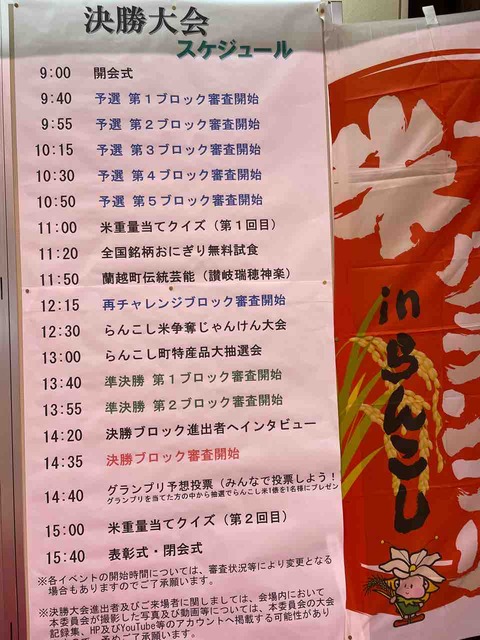 決勝大会
スケジュール
9:00 開会式
9:40 予選 第1ブロック審査開始
9:55 予選 第2ブロック審査開始
10:15 予選 第3ブロック審査開始
10:30 予選 第4ブロック審査開始
10:50 予選 第5ブロック審査開始
11:00 米重量当てクイズ(第1回目)
11:20 全国銘柄おにぎり無料試食
11:50 蘭越町伝統芸能(讃岐瑞穂神楽)
12:15 再チャレンジブロック審査開始
12:30 らんこし米争奪じゃんけん大会
13:00 らんこし町特産品大抽選会
13:40 準決勝 第1ブロック審査開始
13:55 準決勝 第2ブロック審査開始
14:20 決勝ブロック進出者へインタビュー
14:35 決勝ブロック審査開始
14:40 グランプリ予想投票(みんなで投票しよう!
グランプリを当てた方の中から抽選でらんこし米1俵を1名様にプレゼン
15:00 米重量当てクイズ(第2回目)
15:40 表彰式・閉会式
※各イベントの開始時間については、審査状況等により変更となる
場合もありますのでご了承願います。
※決勝大会進出者及びご来場者に関しましては、会場内において
本委員会が撮影した写真及び動画等については、本委員会の大会
記録集、HP及びYouTube等のアカウントへ掲載する可能性があり
予めご了承願います。
米
in らんこし